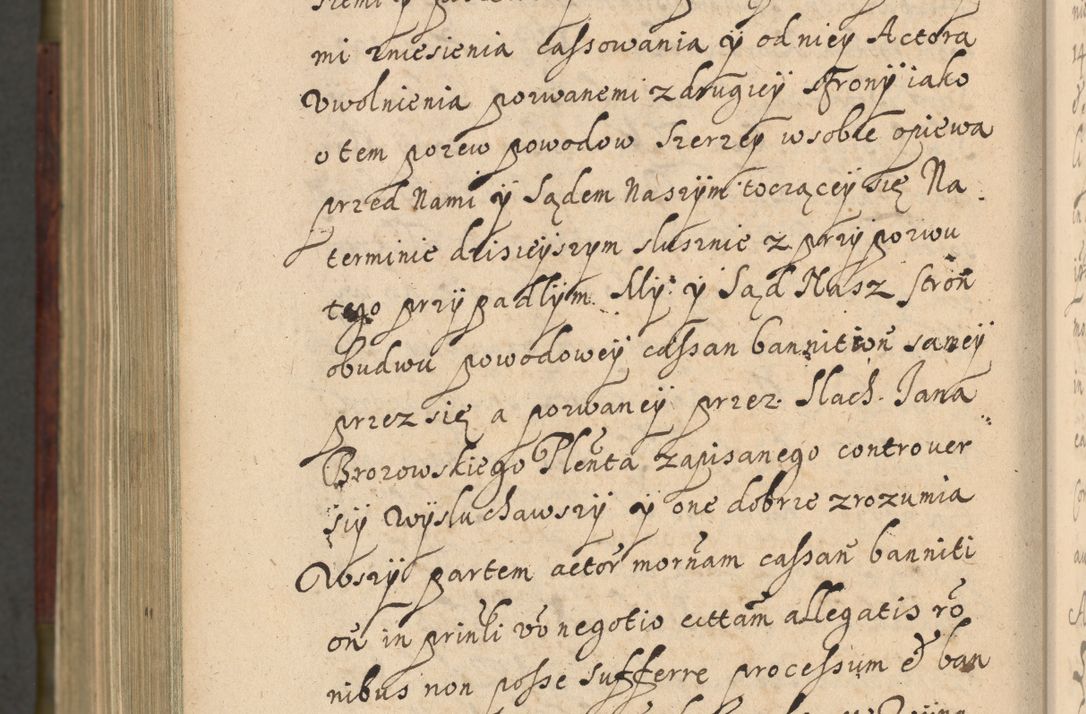 mi zniesienia cassowania ÿ od nieÿ Actora
Vwolnienia pozwanemi z drugieÿ stronÿ iako
o tem pozew powodow szerzeÿ w sobie opiewa
przed Nami ÿ Sądem Naszÿm tocząceÿ się Na
terminie dzisieÿszym slusznie z przÿ pozwu
tego przÿpadlÿm. Mÿ ÿ Sąd Nasz stron
obudwu powodoweÿ cassan̄ bannition̄ sameÿ
przez się a pozwaneÿ przez Slach. Jana
Brozowskiego Plēnta zapisanego controver
siÿ wÿsluchawszÿ ÿ one dobrze zrozumia
wszÿ partem actor̄ morn̄am cassan̄ banniti
on̄ in prin̄li vo negotio cittam̄ allegatis ro
nibus non posse sufferre processum & ban